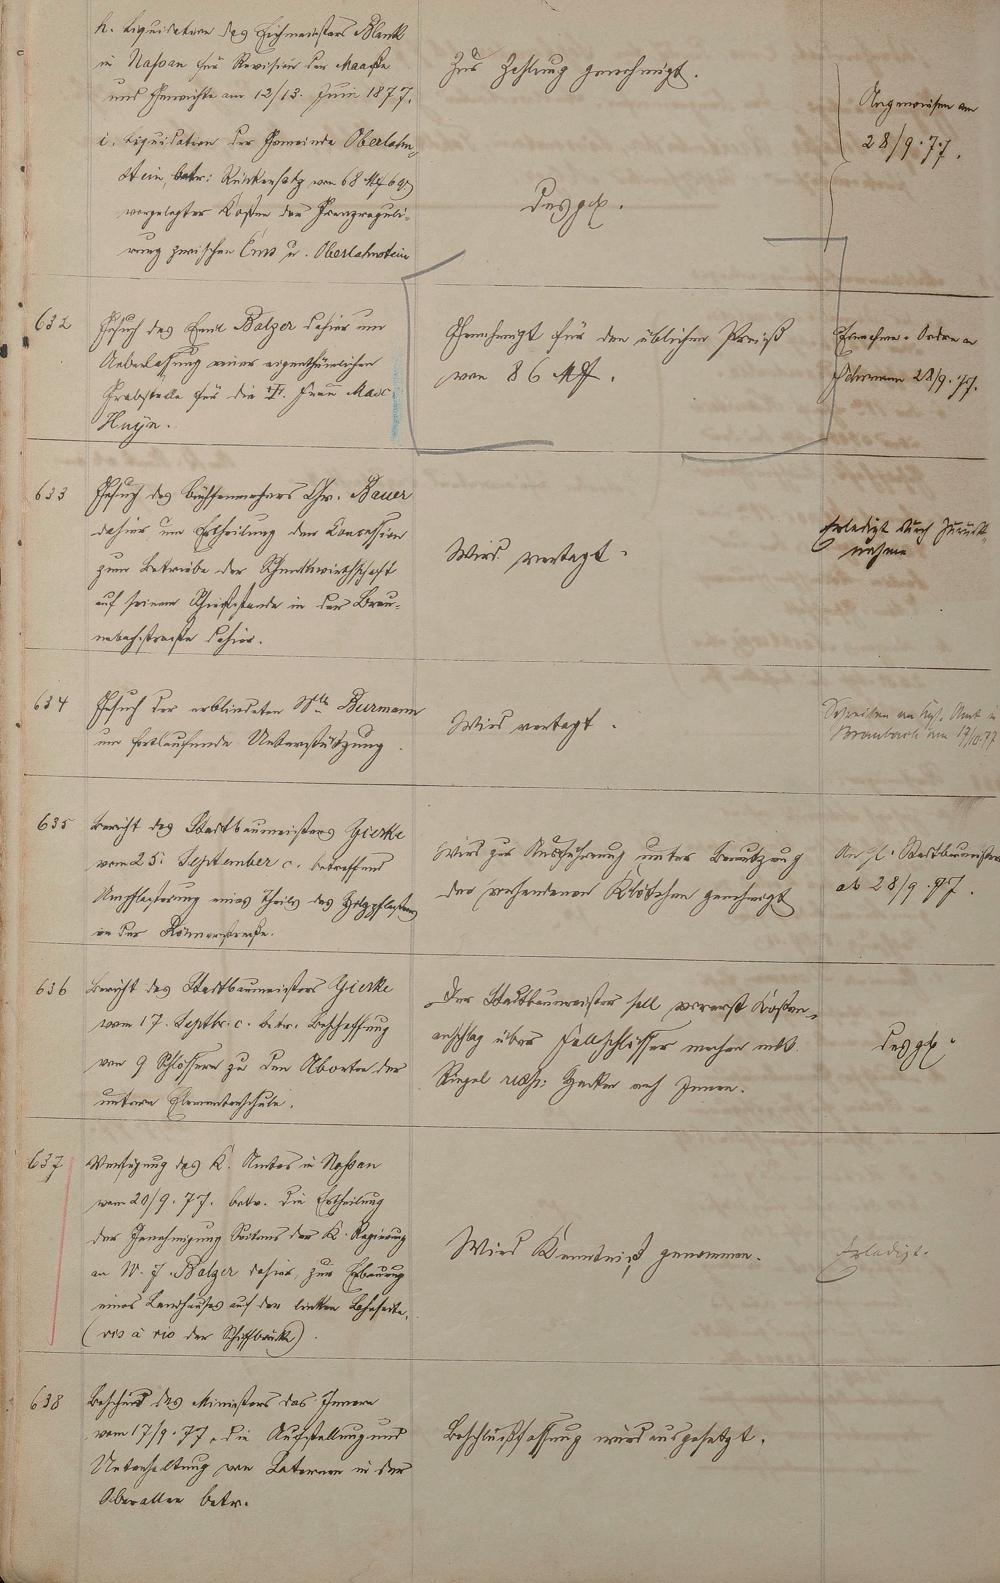 h. Liquidation des Eichmeisters Blank
in Nassau für Revision der Maaße
und Gewichte am 12/13. Juni 1877.
Zur Zahlung genehmigt.
Angewiesen am
28/9.77.
i. Liquidation der Gemeinde Oberlahn-
stein, betr: Rückersatz von 68 M 69
vorgelegter Kosten der Grenzreguli-
rung zwischen Ems u. Oberlahnstein
desgl.
632
Gesuch des Emil Balzer dahier um
Ueberlassung einer eigenthümlichen
Grabstelle für die Frau Marc
Huyn.
Genehmigt für den üblichen Preiß
von 86 M.
Einnahme-Ordre an
28/9.77.
633
Gesuch des Büchsenmachers Chr. Bauer
dahier um Ertheilung der Concession
zum Betriebe der Schenkwirthschaft
auf seinem Schießstande in der Brau-
nebachstraße dahier.
Wird vertagt.
Erledigt durch Zurück-
nahme
634
Gesuch der erblindeten Wtb. Burmann
um fortlaufende Unterstützung.
Wird vertagt.
Schreiben an Kgl. Amt in
Braubach am 17/10.77
635
Bericht des Stadtbaumeisters Gierke
vom 25. September c. betreffend
Umpflasterung eines Theiles des Holzpflasters
in der Römerstraße.
Wird zur Ausführung unter Benutzung
der vorhandenen Klötzchen genehmigt
An H. Stadtbaumeister
ab 28/9.77.
636
Bericht des Stadtbaumeisters Gierke
vom 17. Septbr. c. betr. Beschaffung
von 9 Schlössern zu den Aborten der
untern Elementarschule.
Der Stadtbaumeister soll vorerst Kosten-
anschlag über Fallschlösser machen mit
Riegel resp: Hacken nach Innen.
desgl.
637
Verfügung des K. Amtes in Nassau
vom 20/9.77. betr. die Ertheilung
der Genehmigung Seitens der K. Regierung
an W. J. Balzer dahier, zur Erbauung
eines Landhauses auf der linken Lahnseite,
(vis à vis der Schiffbrücke).
Wird Kenntniß genommen.
Erledigt.
638
Bescheid des Ministers des Innern
vom 17/9.77, die Aufstellung und
Unterhaltung von Laternen in der
Oberallee betr.
Beschlußfassung wird ausgesetzt.